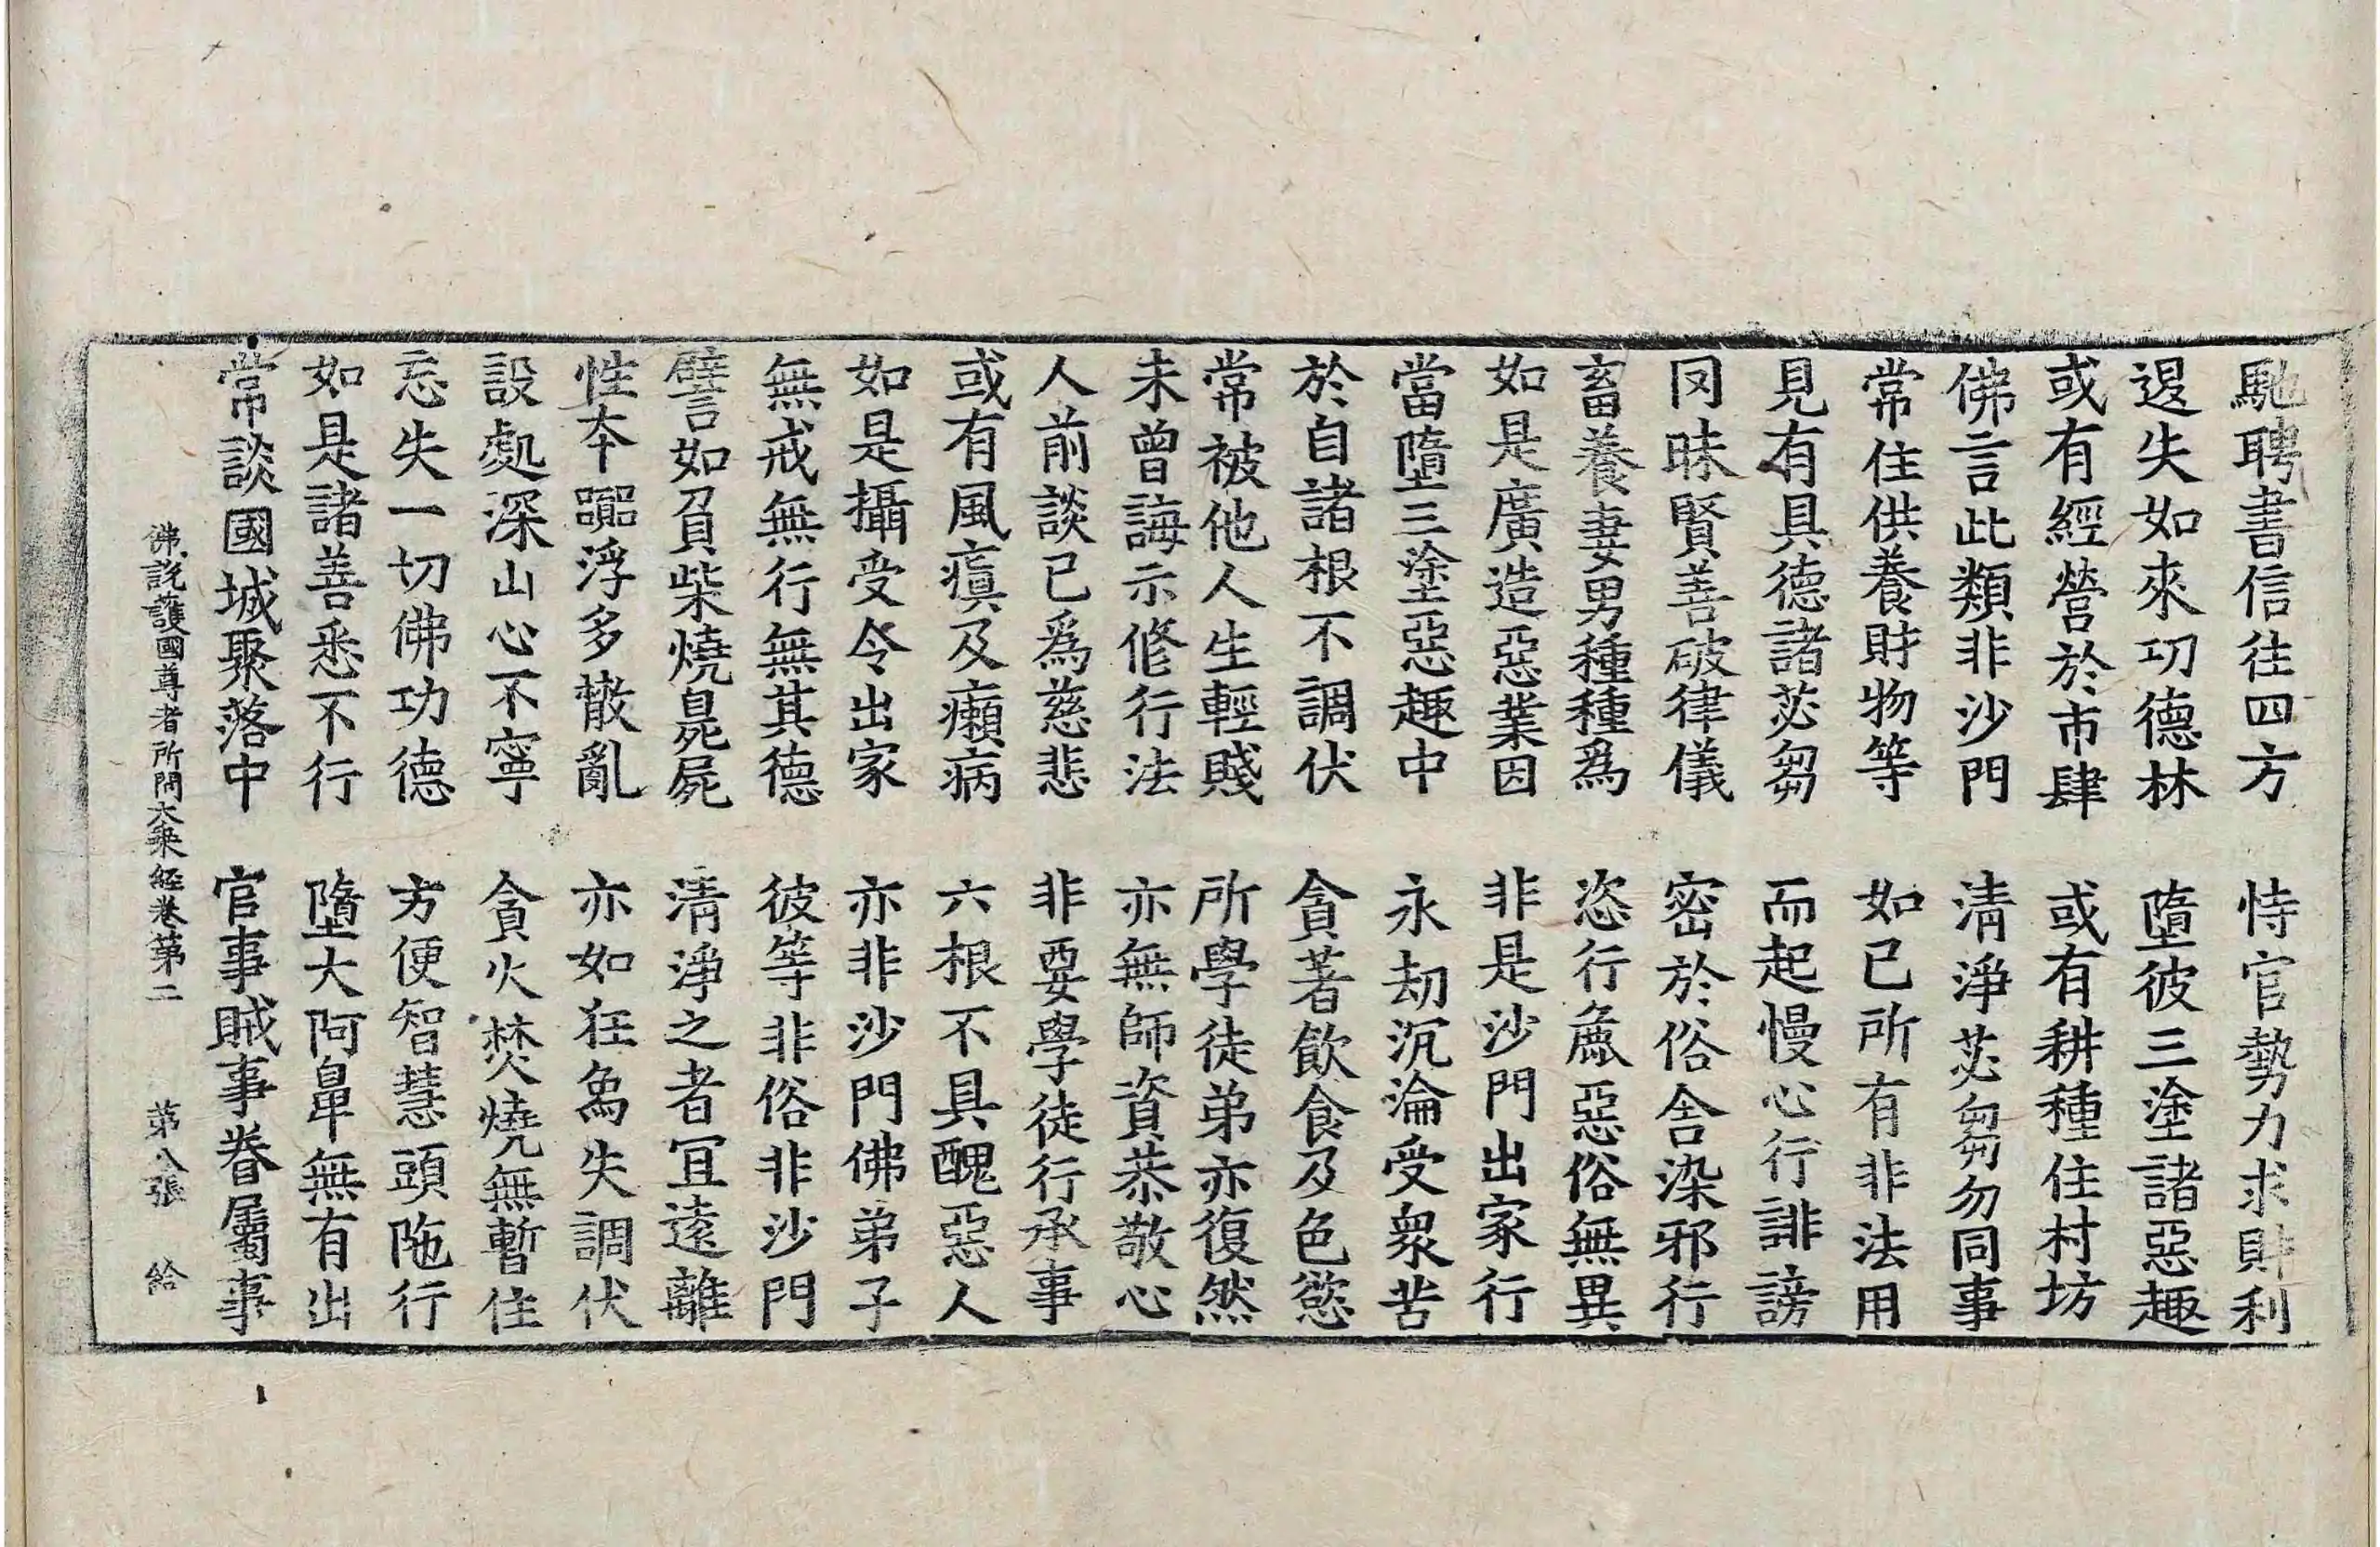 馳騁書信往四方　恃官勢力求財利
退失如來功德林　墮彼三塗諸惡趣
或有經營於市肆　或有耕種住村坊
佛言此類非沙門　清淨苾芻勿同事
常住供養財物等　如已所有非法用
見有具德諸苾芻　而起慢心行誹謗
罔昧賢善破律儀　密於俗舍染邪行
畜養妻男種種爲　恣行麁惡俗無異
如是廣造惡業因　非是沙門出家行
當墮三塗惡趣中　永劫沉淪受衆苦
於自諸根不調伏　貪著飮食及色慾
常被他人生輕賤　所學徒弟亦復然
未曾誨示修行法　亦無師資恭敬心
人前談已爲慈悲　非要學徒行承事
或有風瘨及癩病　六根不具醜惡人
如是攝受令出家　亦非沙門佛弟子
無戒無行無其德　彼等非俗非沙門
譬如負柴燒臰屍　清淨之者冝遠離
性夲嚻浮多散亂　亦如狂象失調伏
設處深山心不寧　貪火焚燒無暫住
忘失一切佛功德　方便智慧頭陁行
如是諸善悉不行　墮大阿鼻無有出
常談國城聚落中　官事賊事眷屬事
佛說護國尊者所問大乘經卷第二　第八張　給